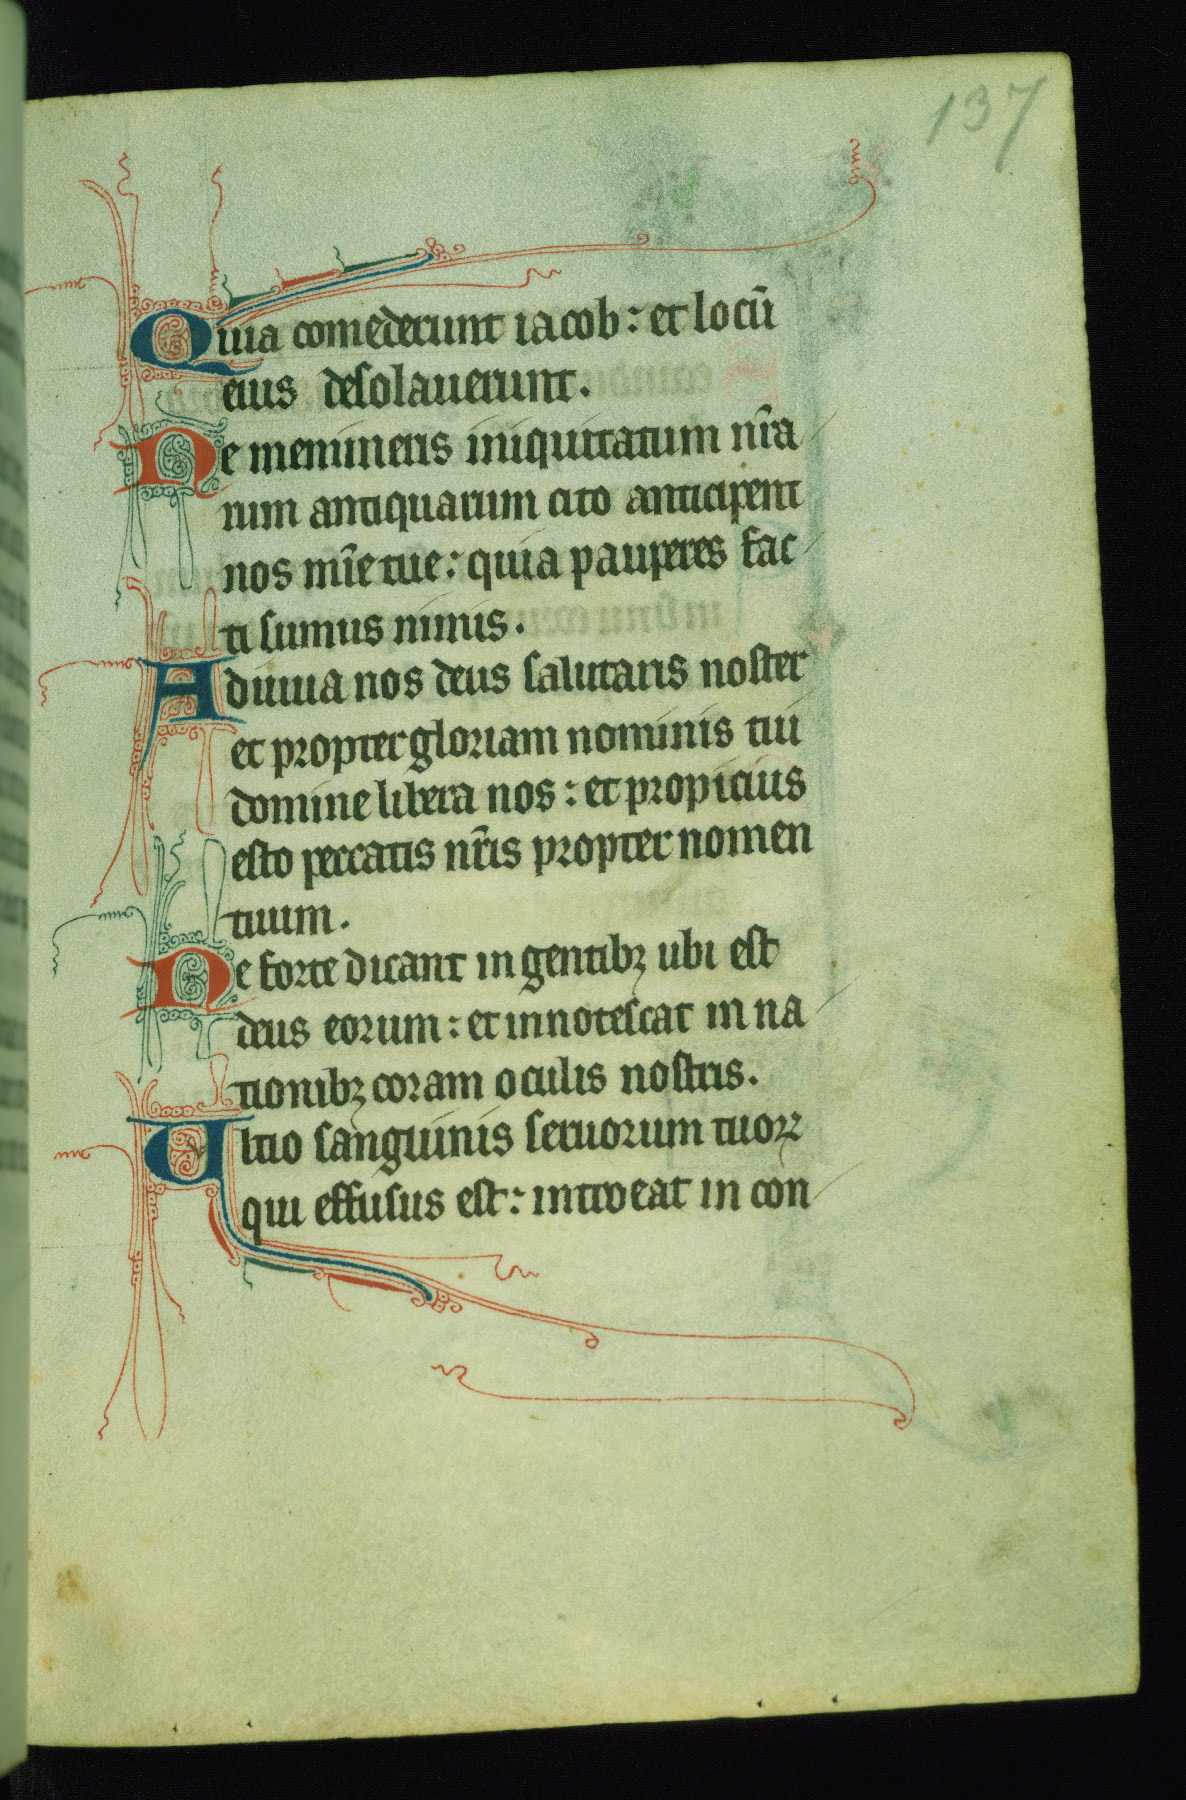 137
Quia comederunt iacob: et locū
eius desolauerunt.
Ne memineris iniquitatum nr̄a
rum antiquarum cito anticipent
nos mīe tue: quia pauperes fac
ti sumus nimis.
Adiuua nos deus salutaris noster
et propter gloriam nominis tui
domine libera nos: et propicius
esto peccatis nr̄is propter nomen
tuum.
Ne forte dicant in gentibꝫ ubi est
deus eorum: et innotescat in na
tionibꝫ coram oculis nostris.
Vltio sanguinis seruorum tuoꝝ
qui effusus est: introeat in con